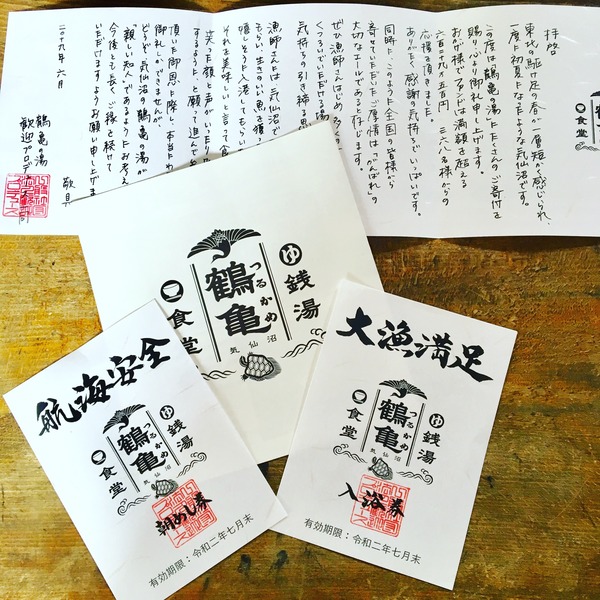 拝啓
東北の駆け足の春が一層短く感じられ、
一度に初夏になったような気仙沼です。
この度は「鶴亀の湯」にたくさんのご寄付を
賜り心より御礼申し上げます。
おかげ様でファンドは満額を超える
応援を頂きました。
ありがたく感謝の気持ちでいっぱいです。
同時にこのような全国の皆様から
寄せていただいたご厚情は「がんばれ」の
大切なエールであると存じます。
ぜひ漁師さんはじめ多くの
くつろいでいただける
気持ちの引き締る思
漁師さんは気仙沼で
もらい、生きのいい魚を獲っ
嬉しそうに入港してもらい
それを美味しいと言って食
笑った顔と声がいっ
するように、と願って進んで
頂いた御恩に際し、本当に
御礼しかできませんが、
どうぞ、気仙沼の「鶴亀の湯」が
「親しい知人」であるようにお考え
いただけますようお願い申し上げま
今後とも長くご縁を続けて
敬具
二〇一九年 六月
鶴亀の湯
食堂
ゆ
銭湯
鶴亀
つるかめ
食堂
気仙沼
航海安全
ゆ
銭湯
鶴亀
つるかめ
食堂
気仙沼
朝めし券
有効期限：令和二年七月末
大漁満足
ゆ
銭湯
鶴亀
つるかめ
食堂
気仙沼
入浴券
有効期限：令和二年七月末